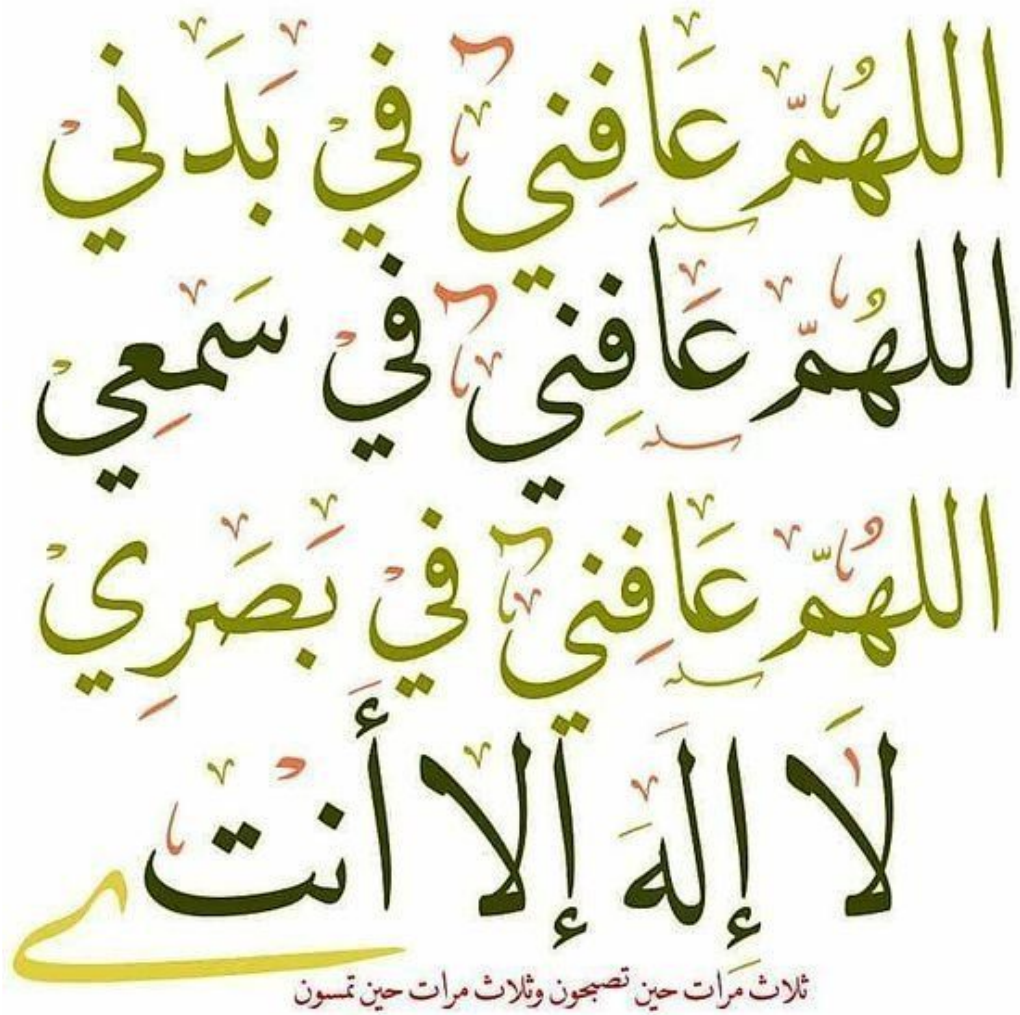 اللهُمَّ عَافِنِي فِي بَدَنِي
اللهُمَّ عَافِنِي فِي سَمعِي
اللهُمَّ عَافِنِي فِي بَصَرِي
لَا إِلهَ إِلا أَنتَ
ثلاث مرات حين تصبحون وثلاث مرات حين تمسون